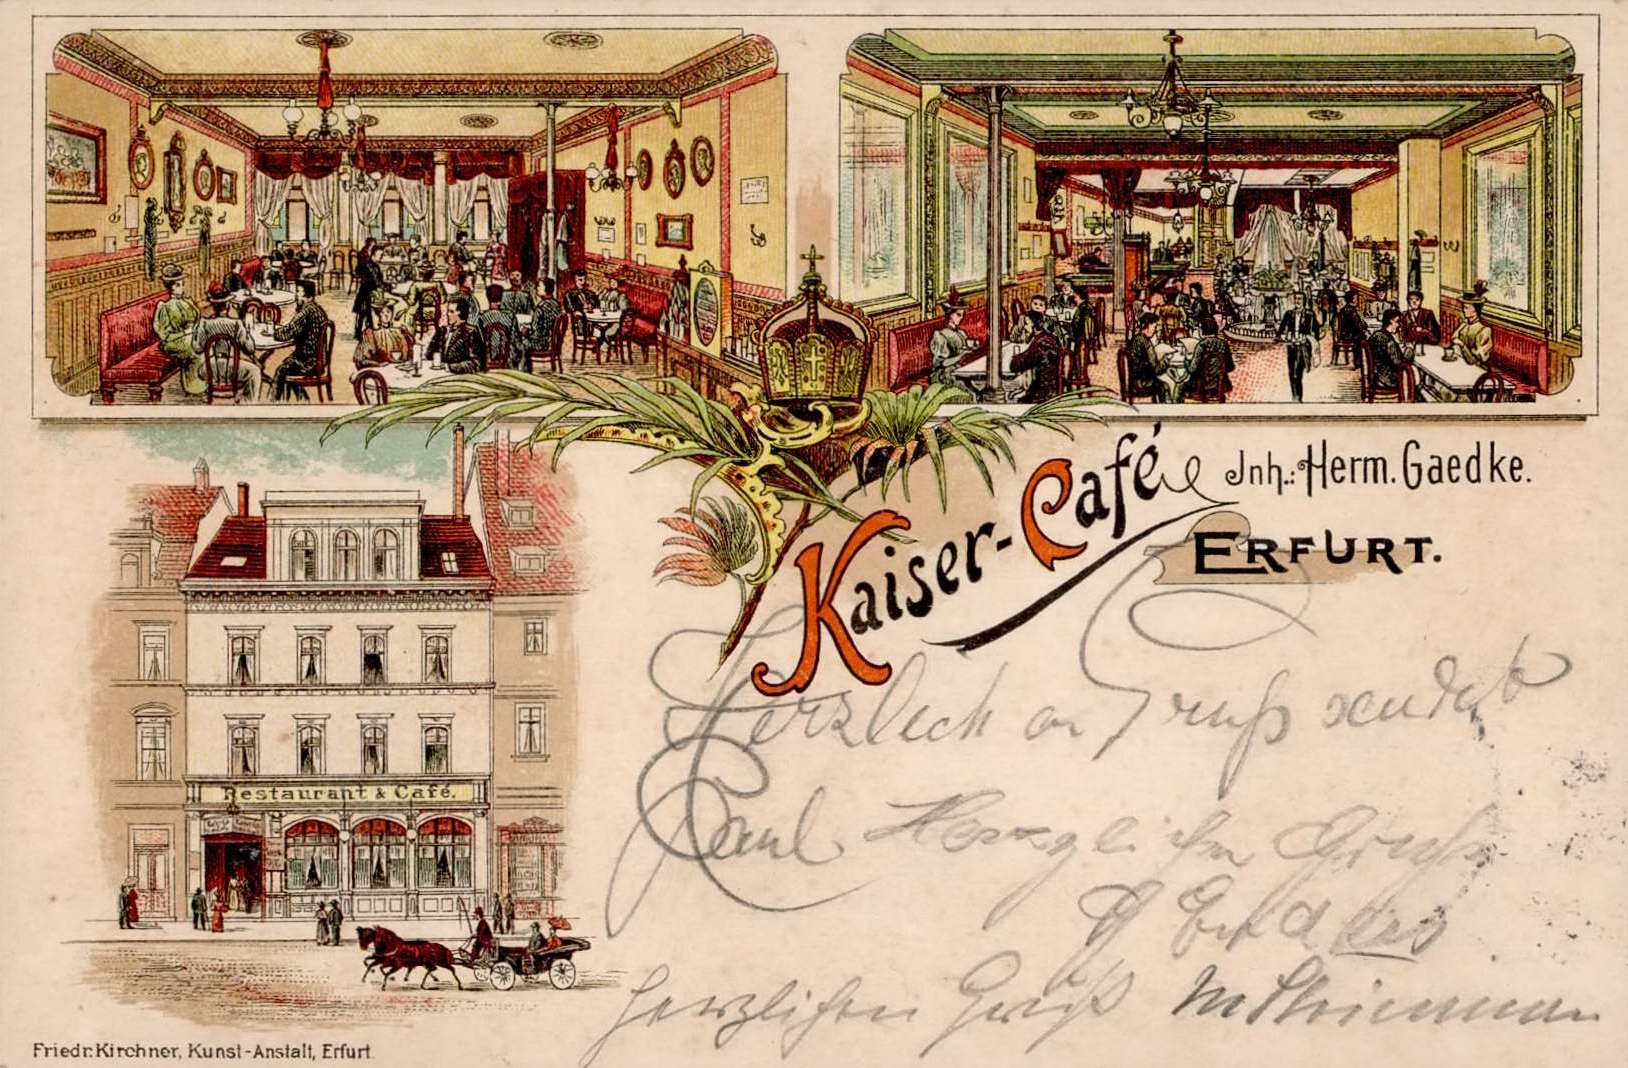 Kaiser-Café
Inh.: Herm. Gaedke.
ERFURT.
Restaurant & Café.
Herzlichen Gruß sendet
Paul Herzlichen Gruß
herzlichen Gruß
Friedr. Kirchner, Kunst-Anstalt, Erfurt.